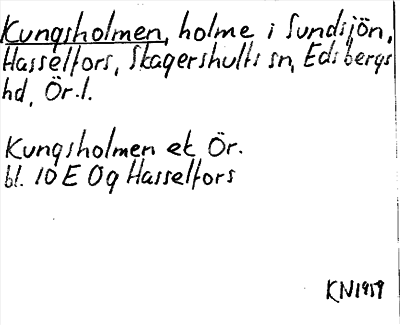 Kungsholmen, holme i Sundsjön,
Hasselfors, Skagershults sn, Edsbergs
hd, Ör. l.
Kungsholmen ek Ör.
bl. 10 E 0g Hasselfors
KN1959